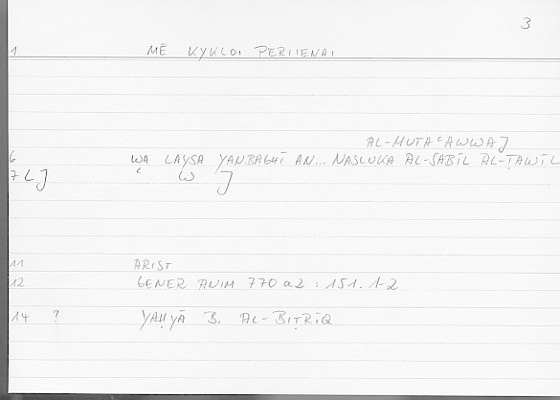 3
1 MĒ KYKLOI PERIIENAI
AL-MUTAʿAWWAJ
6 WA LAYSA YANBAGHĪ AN... NASLUKA AL-SABĪL AL-ṬAWĪL
7 LJ ʿ W J
11 ARIST
12 GENER ANIM 770 a2 : 151. 1-2
14 ? YAḤYĀ B. AL-BIṬRĪQ